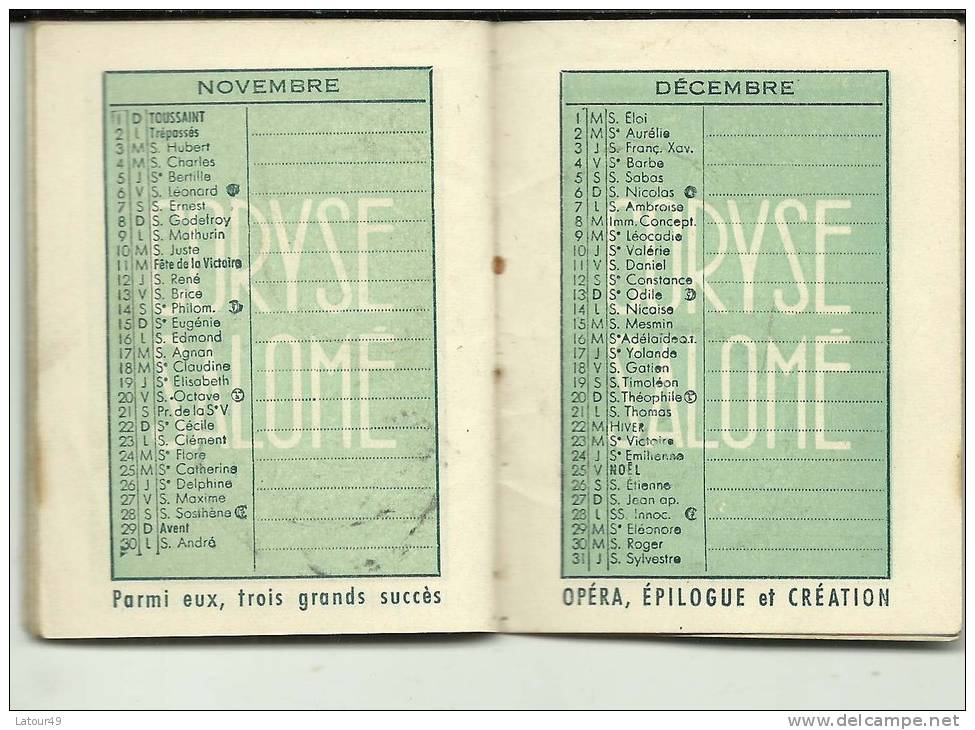 NOVEMBRE
1 D TOUSSAINT
2 L Trépassés
3 M S. Hubert
4 M S. Charles
5 J Sᵉ Bertille
6 V S. Léonard
7 S S. Ernest
8 D S. Godefroy
9 L S. Mathurin
10 M S. Juste
11 M Fête de la Victoire
12 J S. René
13 V S. Brice
14 S Sᵉ Philom.
15 D Sᵉ Eugénie
16 L S. Edmond
17 M S. Agnan
18 M Sᵉ Claudine
19 J Sᵉ Élisabeth
20 V S. Octave
21 S Pr. de la Sᵉ V
22 D Sᵉ Cécile
23 L S. Clément
24 M Sᵉ Flore
25 M Sᵉ Catherine
26 J Sᵉ Delphine
27 V S. Maxime
28 S S. Sosthène
29 D Avent
30 L S. André
ORYSE
ALOMÉ
Parmi eux, trois grands succès
DÉCEMBRE
1 M S. Éloi
2 M Sᵉ Aurélie
3 J S. Franç. Xav.
4 V Sᵉ Barbe
5 S S. Sabas
6 D S. Nicolas
7 L S. Ambroise
8 M Imm. Concept.
9 M Sᵉ Léocadie
10 J Sᵉ Valérie
11 V S. Daniel
12 S Sᵉ Constance
13 D Sᵉ Odile
14 L S. Nicaise
15 M S. Mesmin
16 M Sᵉ Adélaïde Q.T.
17 J Sᵉ Yolande
18 V S. Gatien
19 S S. Timoléon
20 D S. Théophile
21 L S. Thomas
22 M HIVER
23 M Sᵉ Victoire
24 J Sᵉ Émilienne
25 V NOËL
26 S S. Étienne
27 D S. Jean ap.
28 L SS. Innoc.
29 M Sᵉ Éléonore
30 M S. Roger
31 J S. Sylvestre
ORYSE
ALOMÉ
OPÉRA, ÉPILOGUE et CRÉATION
Latour49
www.delcampe.net